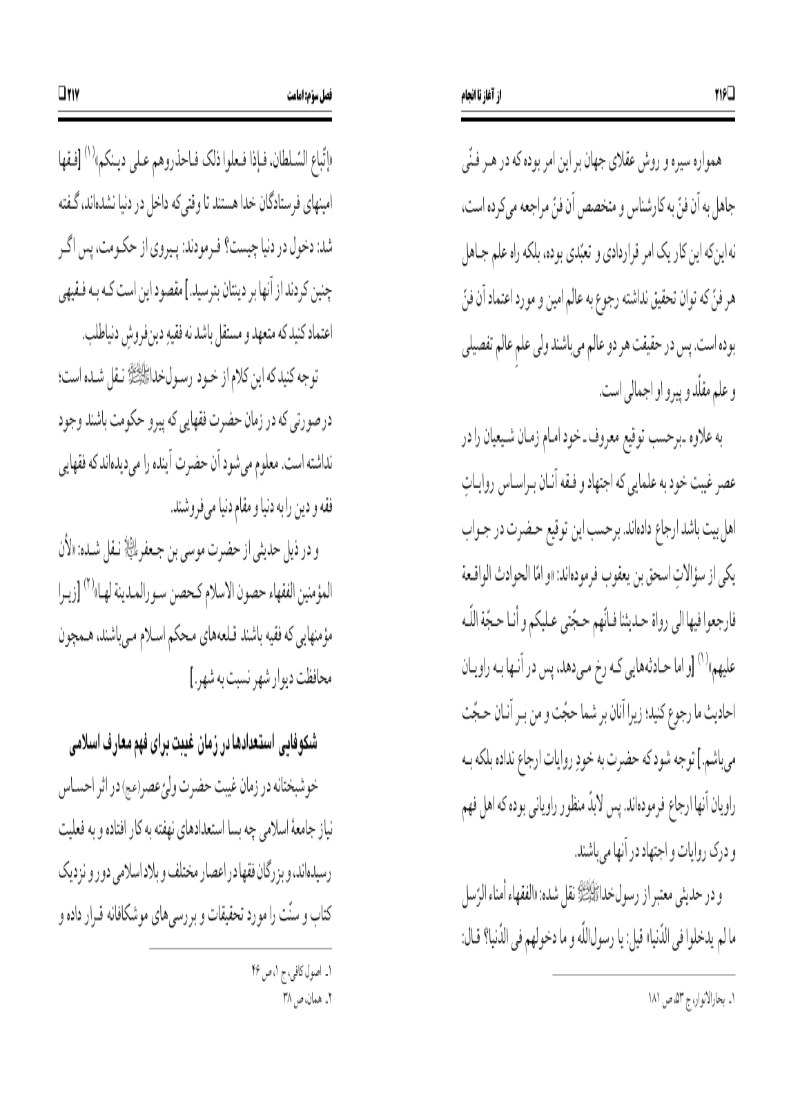 ❏۲۱۶ از آغاز تا انجام
همواره سیره و روش عقلای جهان بر این امر بوده که در هر فنّی
جاهل به آن فنّ به کارشناس و متخصص آن فنّ مراجعه می‌کرده است،
نه این‌که این کار یک امر قراردادی و تعبّدی بوده، بلکه راه علم جاهل
هر فنّ که توان تحقیق نداشته رجوع به عالم امین و مورد اعتماد آن فنّ
بوده است. پس در حقیقت هر دو عالم می‌باشند ولی علمِ عالم تفصیلی
و علم مقلّد و پیرو او اجمالی است.
به علاوه ـ برحسب توقیع معروف ـ خود امام زمان شیعیان را در
عصر غیبت خود به علمایی که اجتهاد و فقه آنان براساس روایاتِ
اهل بیت باشد ارجاع داده‌اند. برحسب این توقیع حضرت در جواب
یکی از سؤالاتِ اسحق بن یعقوب فرموده‌اند: «و امّا الحوادث الواقعة
فارجعوا فیها الی رواة حدیثنا فانّهم حجّتی علیکم و أنا حجّة اللّه
علیهم»(۱) [و اما حادثه‌هایی که رخ می‌دهد، پس در آنها به راویان
احادیث ما رجوع کنید؛ زیرا آنان بر شما حجّت و من بر آنان حجّت
می‌باشم.] توجه شود که حضرت به خودِ روایات ارجاع نداده بلکه به
راویان آنها ارجاع فرموده‌اند. پس لابدّ منظور راویانی بوده که اهل فهم
و درک روایات و اجتهاد در آنها می‌باشند.
و در حدیثی معتبر از رسول‌خداﷺ نقل شده: «الفقهاء اُمناء الرّسل
ما لم یدخلوا فی الدّنیا» قیل: یا رسول‌اللّه و ما دخولهم فی الدّنیا؟ قال:
۱ـ بحارالانوار، ج ۵۳، ص ۱۸۱
فصل سوّم: امامت ۲۱۷❏
«إتّباع السّلطان، فإذا فعلوا ذلک فاحذروهم علی دینکم»(۱) [فقها
امینهای فرستادگان خدا هستند تا وقتی‌که داخل در دنیا نشده‌اند، گفته
شد: دخول در دنیا چیست؟ فرمودند: پیروی از حکومت، پس اگر
چنین کردند از آنها بر دینتان بترسید.] مقصود این است که به فقیهی
اعتماد کنید که متعهد و مستقل باشد نه فقیهِ دین‌فروشِ دنیاطلب.
توجه کنید که این کلام از خود رسول‌خداﷺ نقل شده است؛
در صورتی که در زمان حضرت فقهایی که پیرو حکومت باشند وجود
نداشته است. معلوم می‌شود آن حضرت آینده را می‌دیده‌اند که فقهایی
فقه و دین را به دنیا و مقام دنیا می‌فروشند.
و در ذیل حدیثی از حضرت موسی بن جعفر(ع) نقل شده: «لأن
المؤمنین الفقهاء حصون الاسلام کحصن سورالمدینة لها»(۲) [زیرا
مؤمنهایی که فقیه باشند قلعه‌های محکم اسلام می‌باشند، همچون
محافظت دیوار شهر نسبت به شهر.]
شکوفایی استعدادها در زمان غیبت برای فهم معارف اسلامی
خوشبختانه در زمان غیبت حضرت ولیّ‌عصر(عج) در اثر احساس
نیاز جامعهٔ اسلامی چه بسا استعدادهای نهفته به کار افتاده و به فعلیت
رسیده‌اند، و بزرگان فقها در اعصار مختلف و بلاد اسلامی دور و نزدیک
کتاب و سنّت را مورد تحقیقات و بررسی‌های موشکافانه قرار داده و
۱ـ اصول کافی، ج ۱، ص ۴۶
۲ـ همان، ص ۳۸